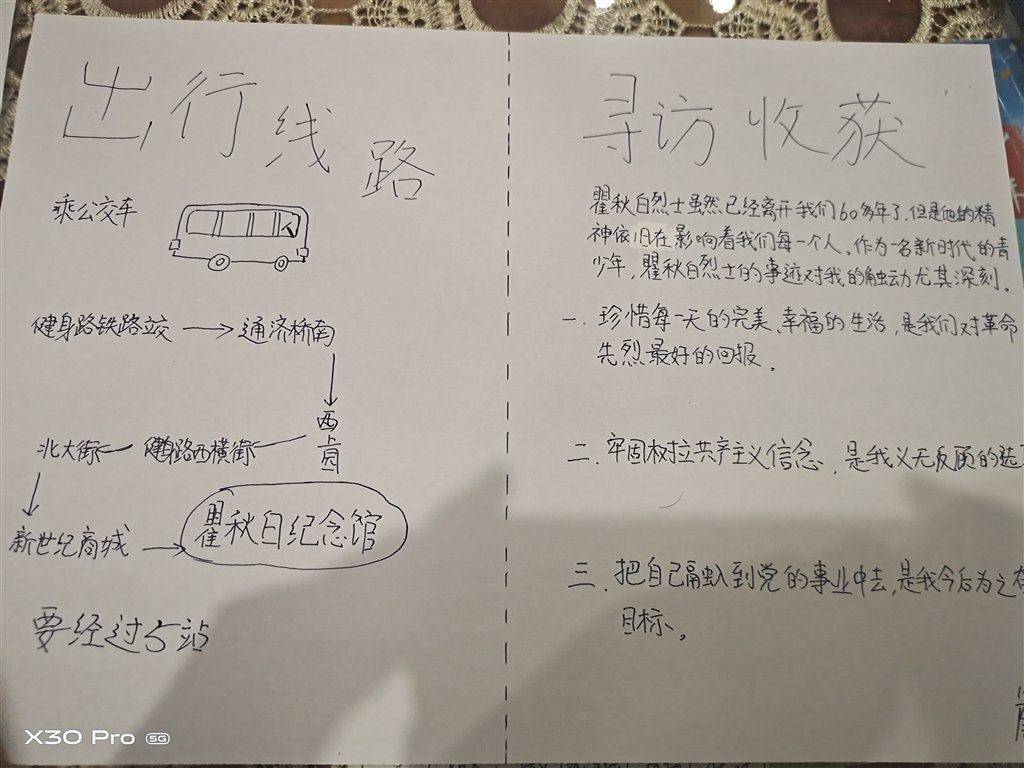 出行线路
乘公交车
健身路铁路立交 → 通济桥南
西上园
健身路西横街
北大街
新世纪商城 →
瞿秋白纪念馆
要经过5站
寻访收获
瞿秋白烈士虽然已经离开我们60多年了,但是他的精
神依旧在影响着我们每一个人、作为一名新时代的青
少年,瞿秋白烈士的事迹对我的触动尤其深刻。
一、珍惜每一天的完美、幸福的生活,是我们对革命
先烈最好的回报。
二、牢固树立共产主义信念,是我义无反顾的选
三、把自己融入到党的事业中去,是我今后为之
目标。
X30 Pro 5G